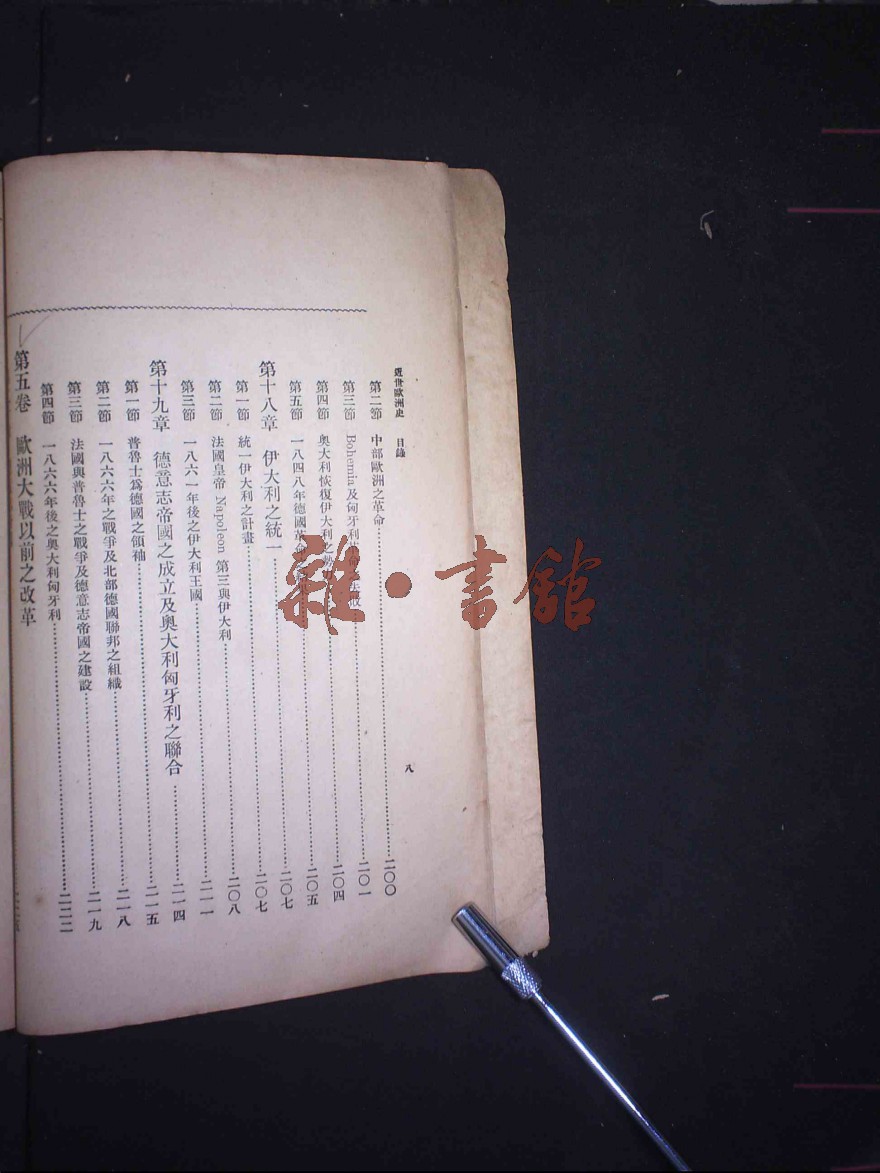 近世歐洲史 目錄 八
第二節 中部歐洲之革命 二〇〇
第三節 Bohemia及匈牙利 二〇一
第四節 奧大利恢復伊大利之 二〇四
第五節 一八四八年德國革命 二〇五
第十八章 伊大利之統一 二〇七
第一節 統一伊大利之計畫 二〇七
第二節 法國皇帝 Napoleon 第三與伊大利 二〇八
第三節 一八六一年後之伊大利王國 二一一
第十九章 德意志帝國之成立及奧大利匈牙利之聯合 二一四
第一節 普魯士爲德國之領袖 二一五
第二節 一八六六年之戰爭及北部德國聯邦之組織 二一八
第三節 法國與普魯士之戰爭及德意志帝國之建設 二一九
第四節 一八六六年後之奧大利匈牙利 二二二
第五卷 歐洲大戰以前之改革
雜·書館